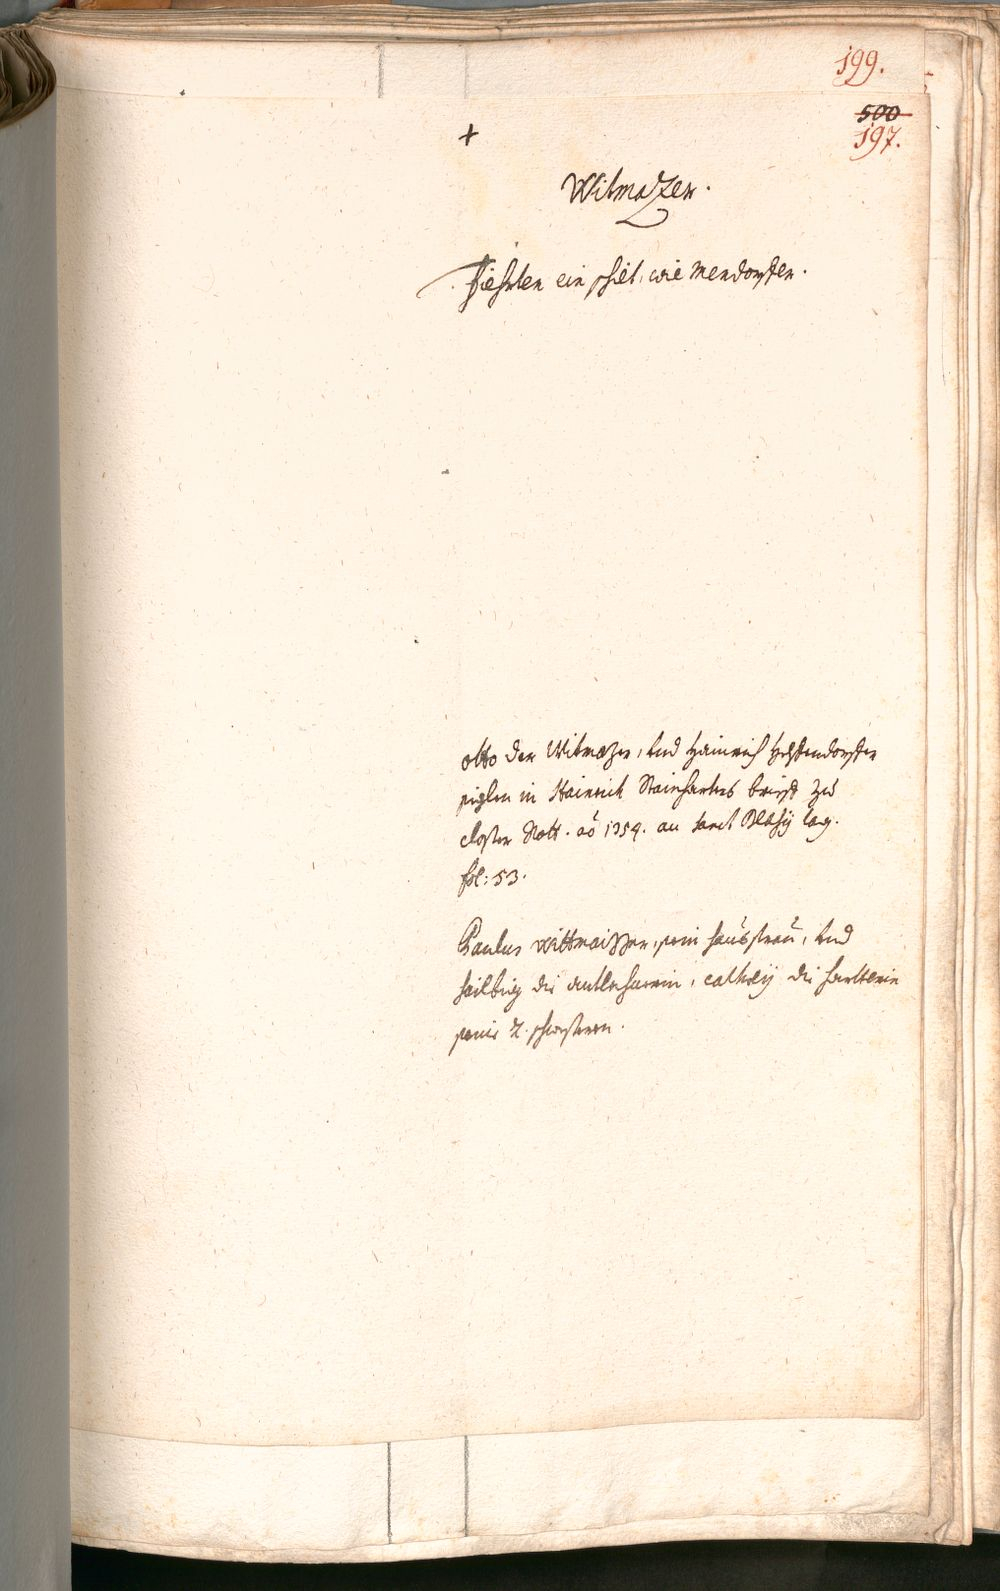 199.
500
197.
+
Witmazer.
Fiehrten ein schilt, wie mendorffer.
Otto der Witmazer, und Hainrich
siglen in Hainrich Stainharts brieff zu
closter Rott. ao 1359. an sanct Blasij tag.
fol: 53.
Paulus Wittmaizzer, sein hausfrau, und
hailbrig die , cathrey die
seine 2. schwestern.